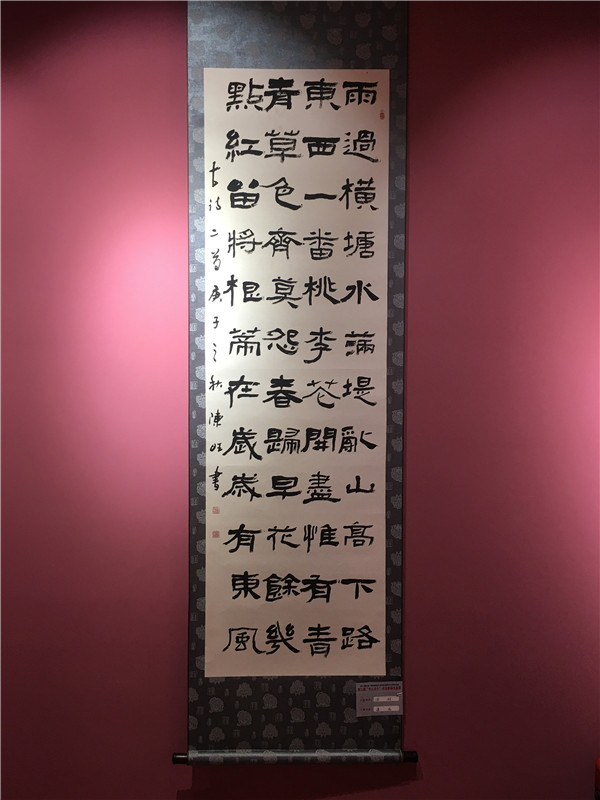 雨過橫塘水滿堤亂山高下路
東西一番桃李花開盡惟有青
青草色齊莫怨春歸早花餘幾
點紅留將根蒂在歲歲有東風
古詩二首庚子之秋陳旺書